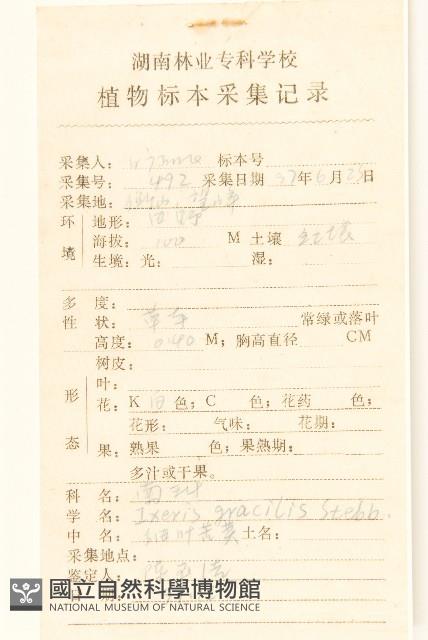 湖南林业专科学校
植物标本采集记录
采集人： 标本号
采集号： 492 采集日期 87年6月23日
采集地：
环境 地形： 田野
海拔： 100 M 土壤 红壤
生境：光： 湿：
多度：
性状： 草本 常绿或落叶
高度： 0.40 M；胸高直径 CM
形态 树皮：
叶：
花：K 白色；C 色；花药 色；
花形： 气味： 花期：
果：熟果 色；果熟期：
多汁或干果。
科名： 菊科
学名： Ixeris gracilis Stebb.
中名： 细叶苦荬 土名：
采集地点：
鉴定人：
國立自然科學博物館
NATIONAL MUSEUM OF NATURAL SCIENCE